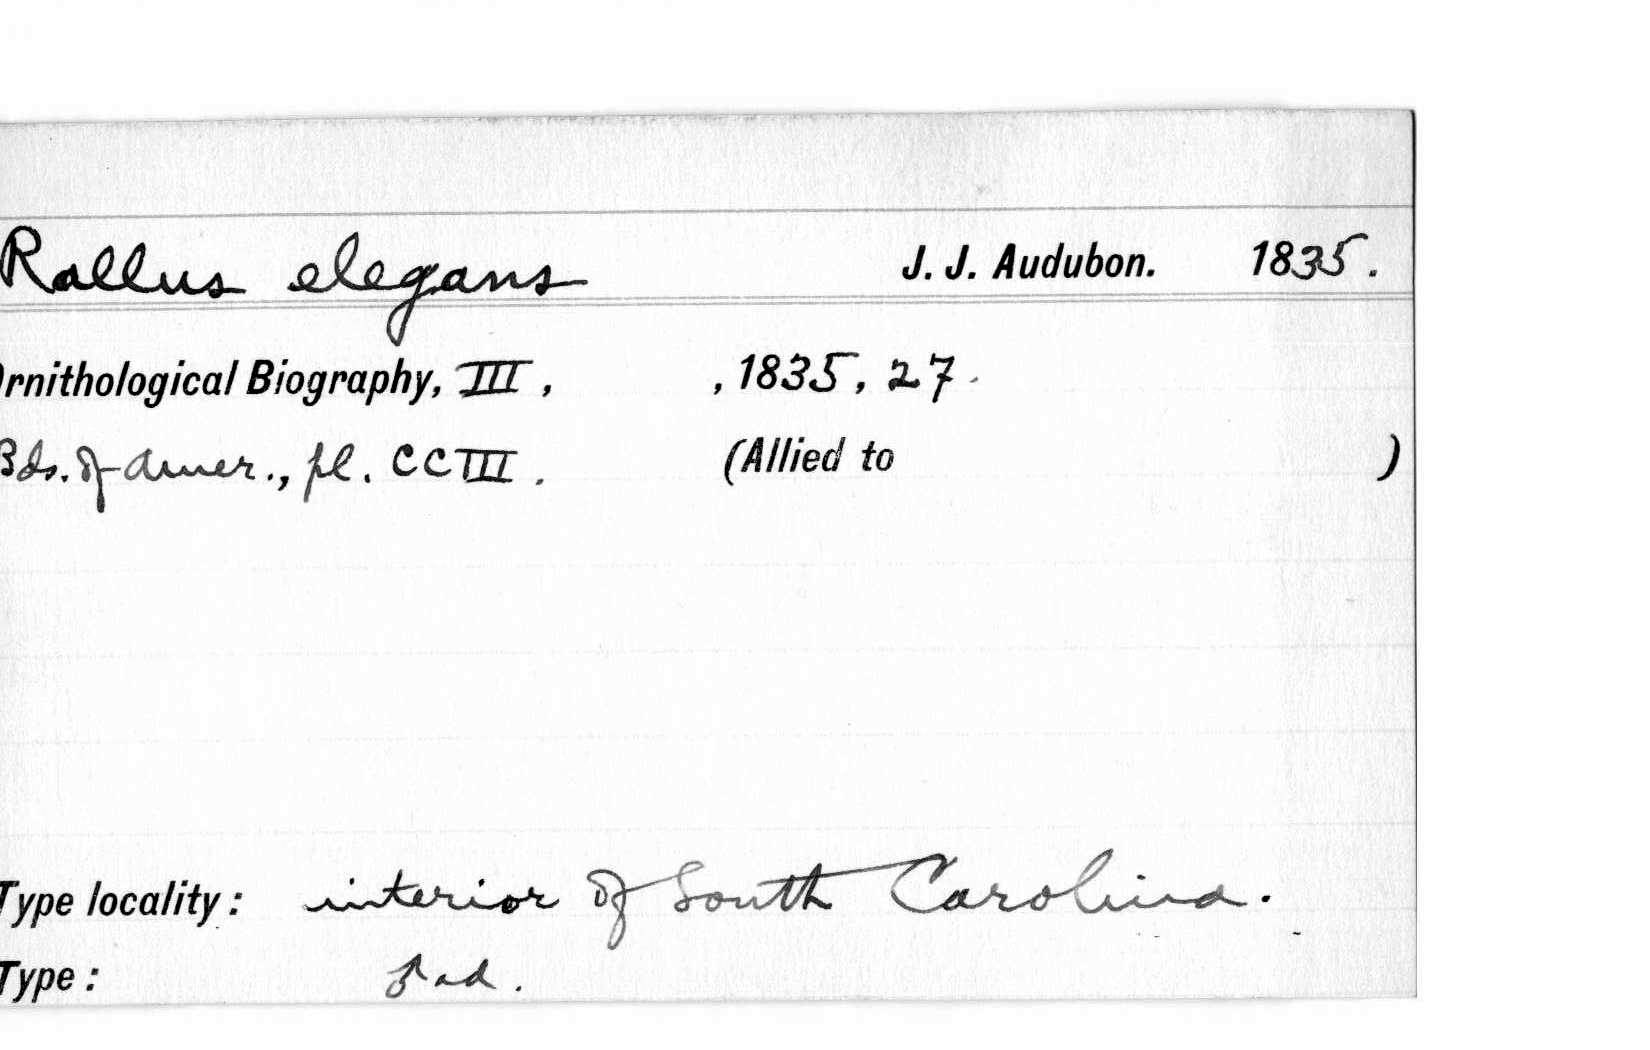 Rallus elegans J. J. Audubon. 1835.
Ornithological Biography, III, , 1835, 27.
Bds. of Amer., pl. CCIII. (Allied to )
Type locality: interior of South Carolina.
Type: ♂ ad.